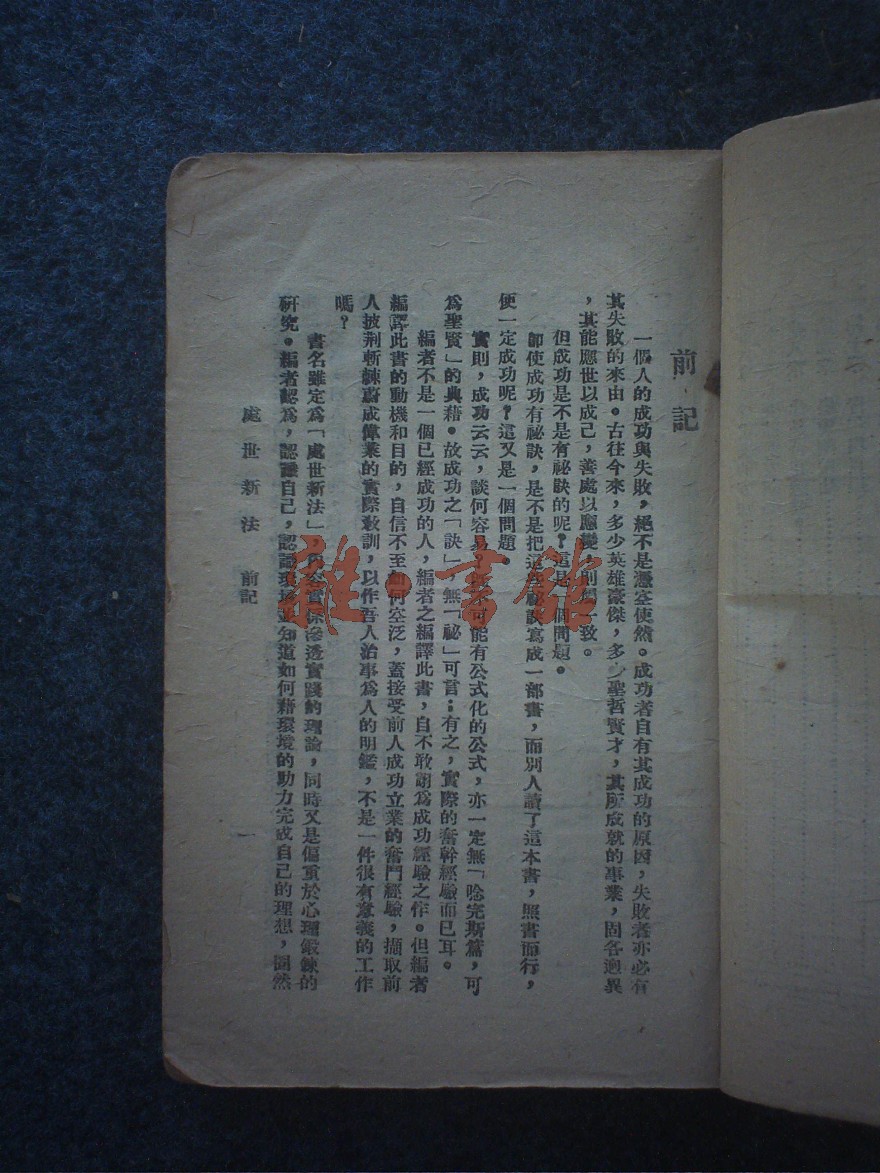 前記
一個人的成功與失敗，絕不是憑空使然。成功者自有其成功的原因，失敗者亦必有
其失敗的來由。古往今來，多少英雄豪傑，多少聖哲賢才，其所成就的事業，固各迥異
，其能應世以成己，善處以應變，則屬一致。
但成功是不是有祕訣的呢？這是一個問題。
卽使成功有祕訣，是不是把這些祕訣寫成一部書，而別人讀了這本書，照書而行，
便一定成功呢？這又是一個問題。
實則，成功云云，談何容易，旣不可能有公式化的公式，亦一定無「唸完斯篇，可
爲聖賢」的典藉。故成功之「訣」，無「祕」可言；有之，實際的奮幹經驗而已耳。
編者不是一個已經成功的人，編者之編譯此書，自不敢謂爲成功經驗之作。但編者
編譯此書的動機和目的，自信不至如何空泛，蓋接受前人成功立業的奮鬥經驗，擷取前
人披荆斬棘蔚成偉業的實際敎訓，以作吾人治事爲人的明鑑，不是一件很有意義的工作
嗎？
書名雖定爲「處世新法」，內容實係滲透實踐的理論，同時又是偏重於心理鍛鍊的
研究。編者認爲，認識自己，認識環境並知道如何藉環境的助力完成自己的理想，固然
處世新法 前記
一
雅·書館